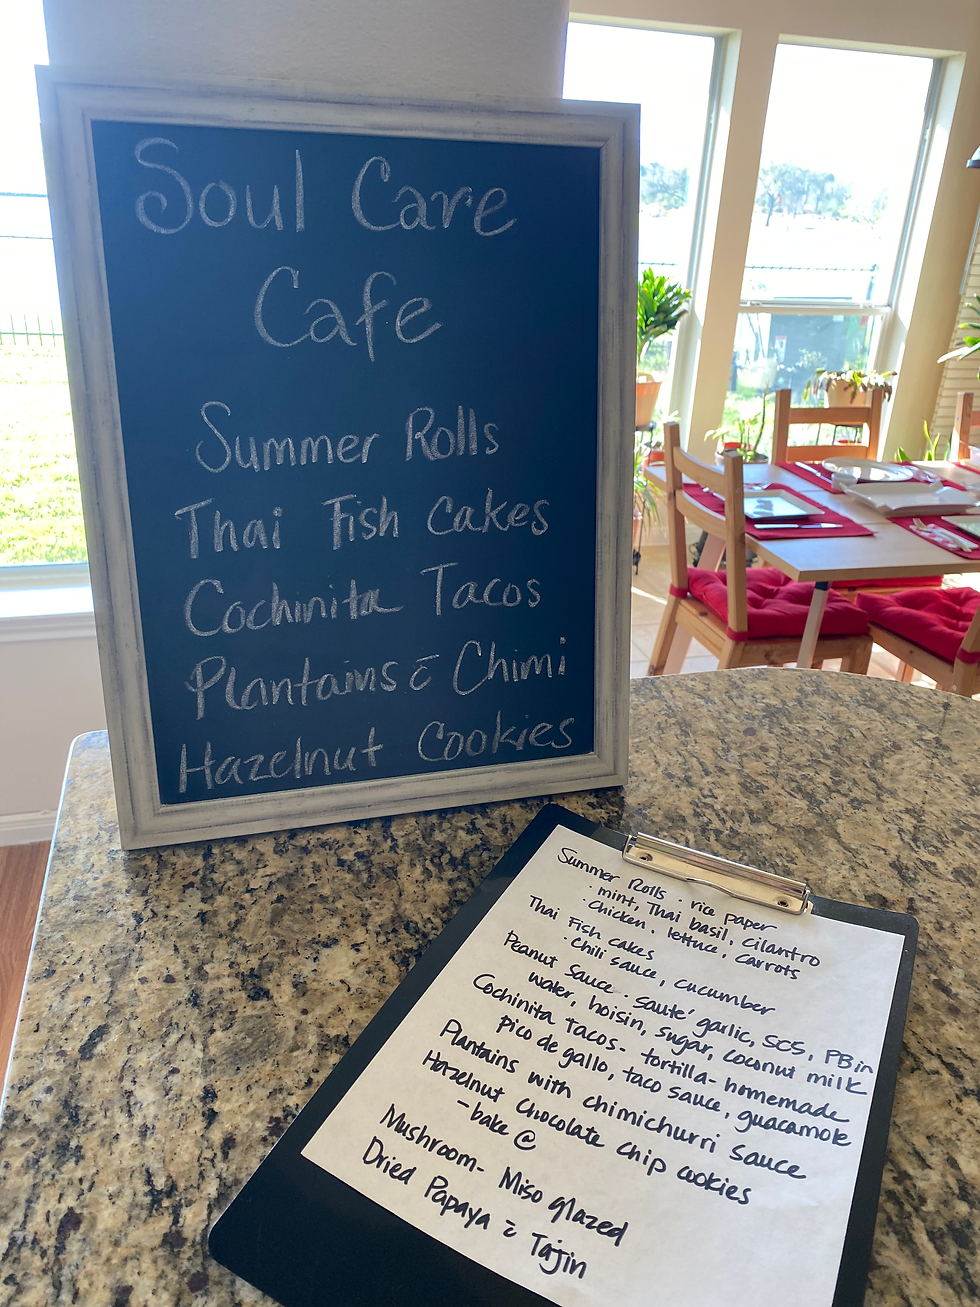 Soul Care
Cafe
Summer Rolls
Thai Fish Cakes
Cochinita Tacos
Plantains c̄ Chimi
Hazelnut Cookies
Summer Rolls · rice paper
· mint, Thai basil, cilantro
· Chicken, lettuce, carrots
Thai Fish cakes
· chili sauce, cucumber
Peanut Sauce · sauté garlic, SCS, PB in
water, hoisin, sugar, coconut milk
Cochinita Tacos - tortilla - homemade
pico de gallo, taco sauce, guacamole
Plantains with chimichurri sauce
Hazelnut Chocolate chip cookies
- bake @
Mushroom - Miso glazed
Dried Papaya c̄ Tajin